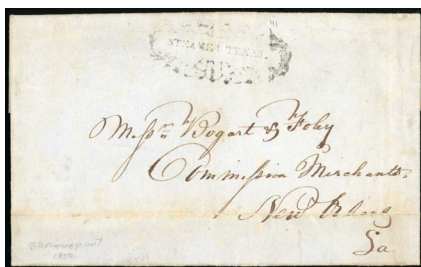 STEAMER TEXAS.
Messrs Bogart & Foley
Commission Merchants.
New Orleans
La
Shreveport